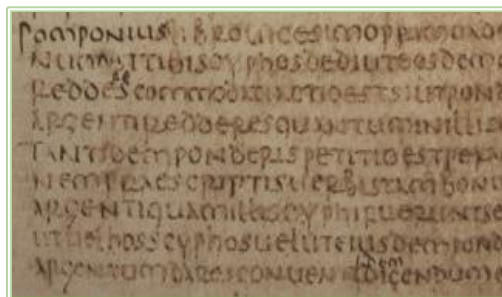 POMPONIUSLIBROUICESIMOPRIMOAD
NUMSITIBISCYPHOSDEDIUTEOSDEM
REDDERESCOMMODATIACTIOESTSIUTPOND
ARGENTIREDDERESQUANTUMINILLI
TANTIDEMPONDERISPETITIOESTPER
NEMPRAESCRIPTISUERBISTAMBONI
ARGENTIQUAMILLISCYPHIFUERUNTSE
UTUELHOSSCYPHOSUELUTEIUSDEMPOND
ARGENTUMDARESCONUENITIDEMDICENDUM